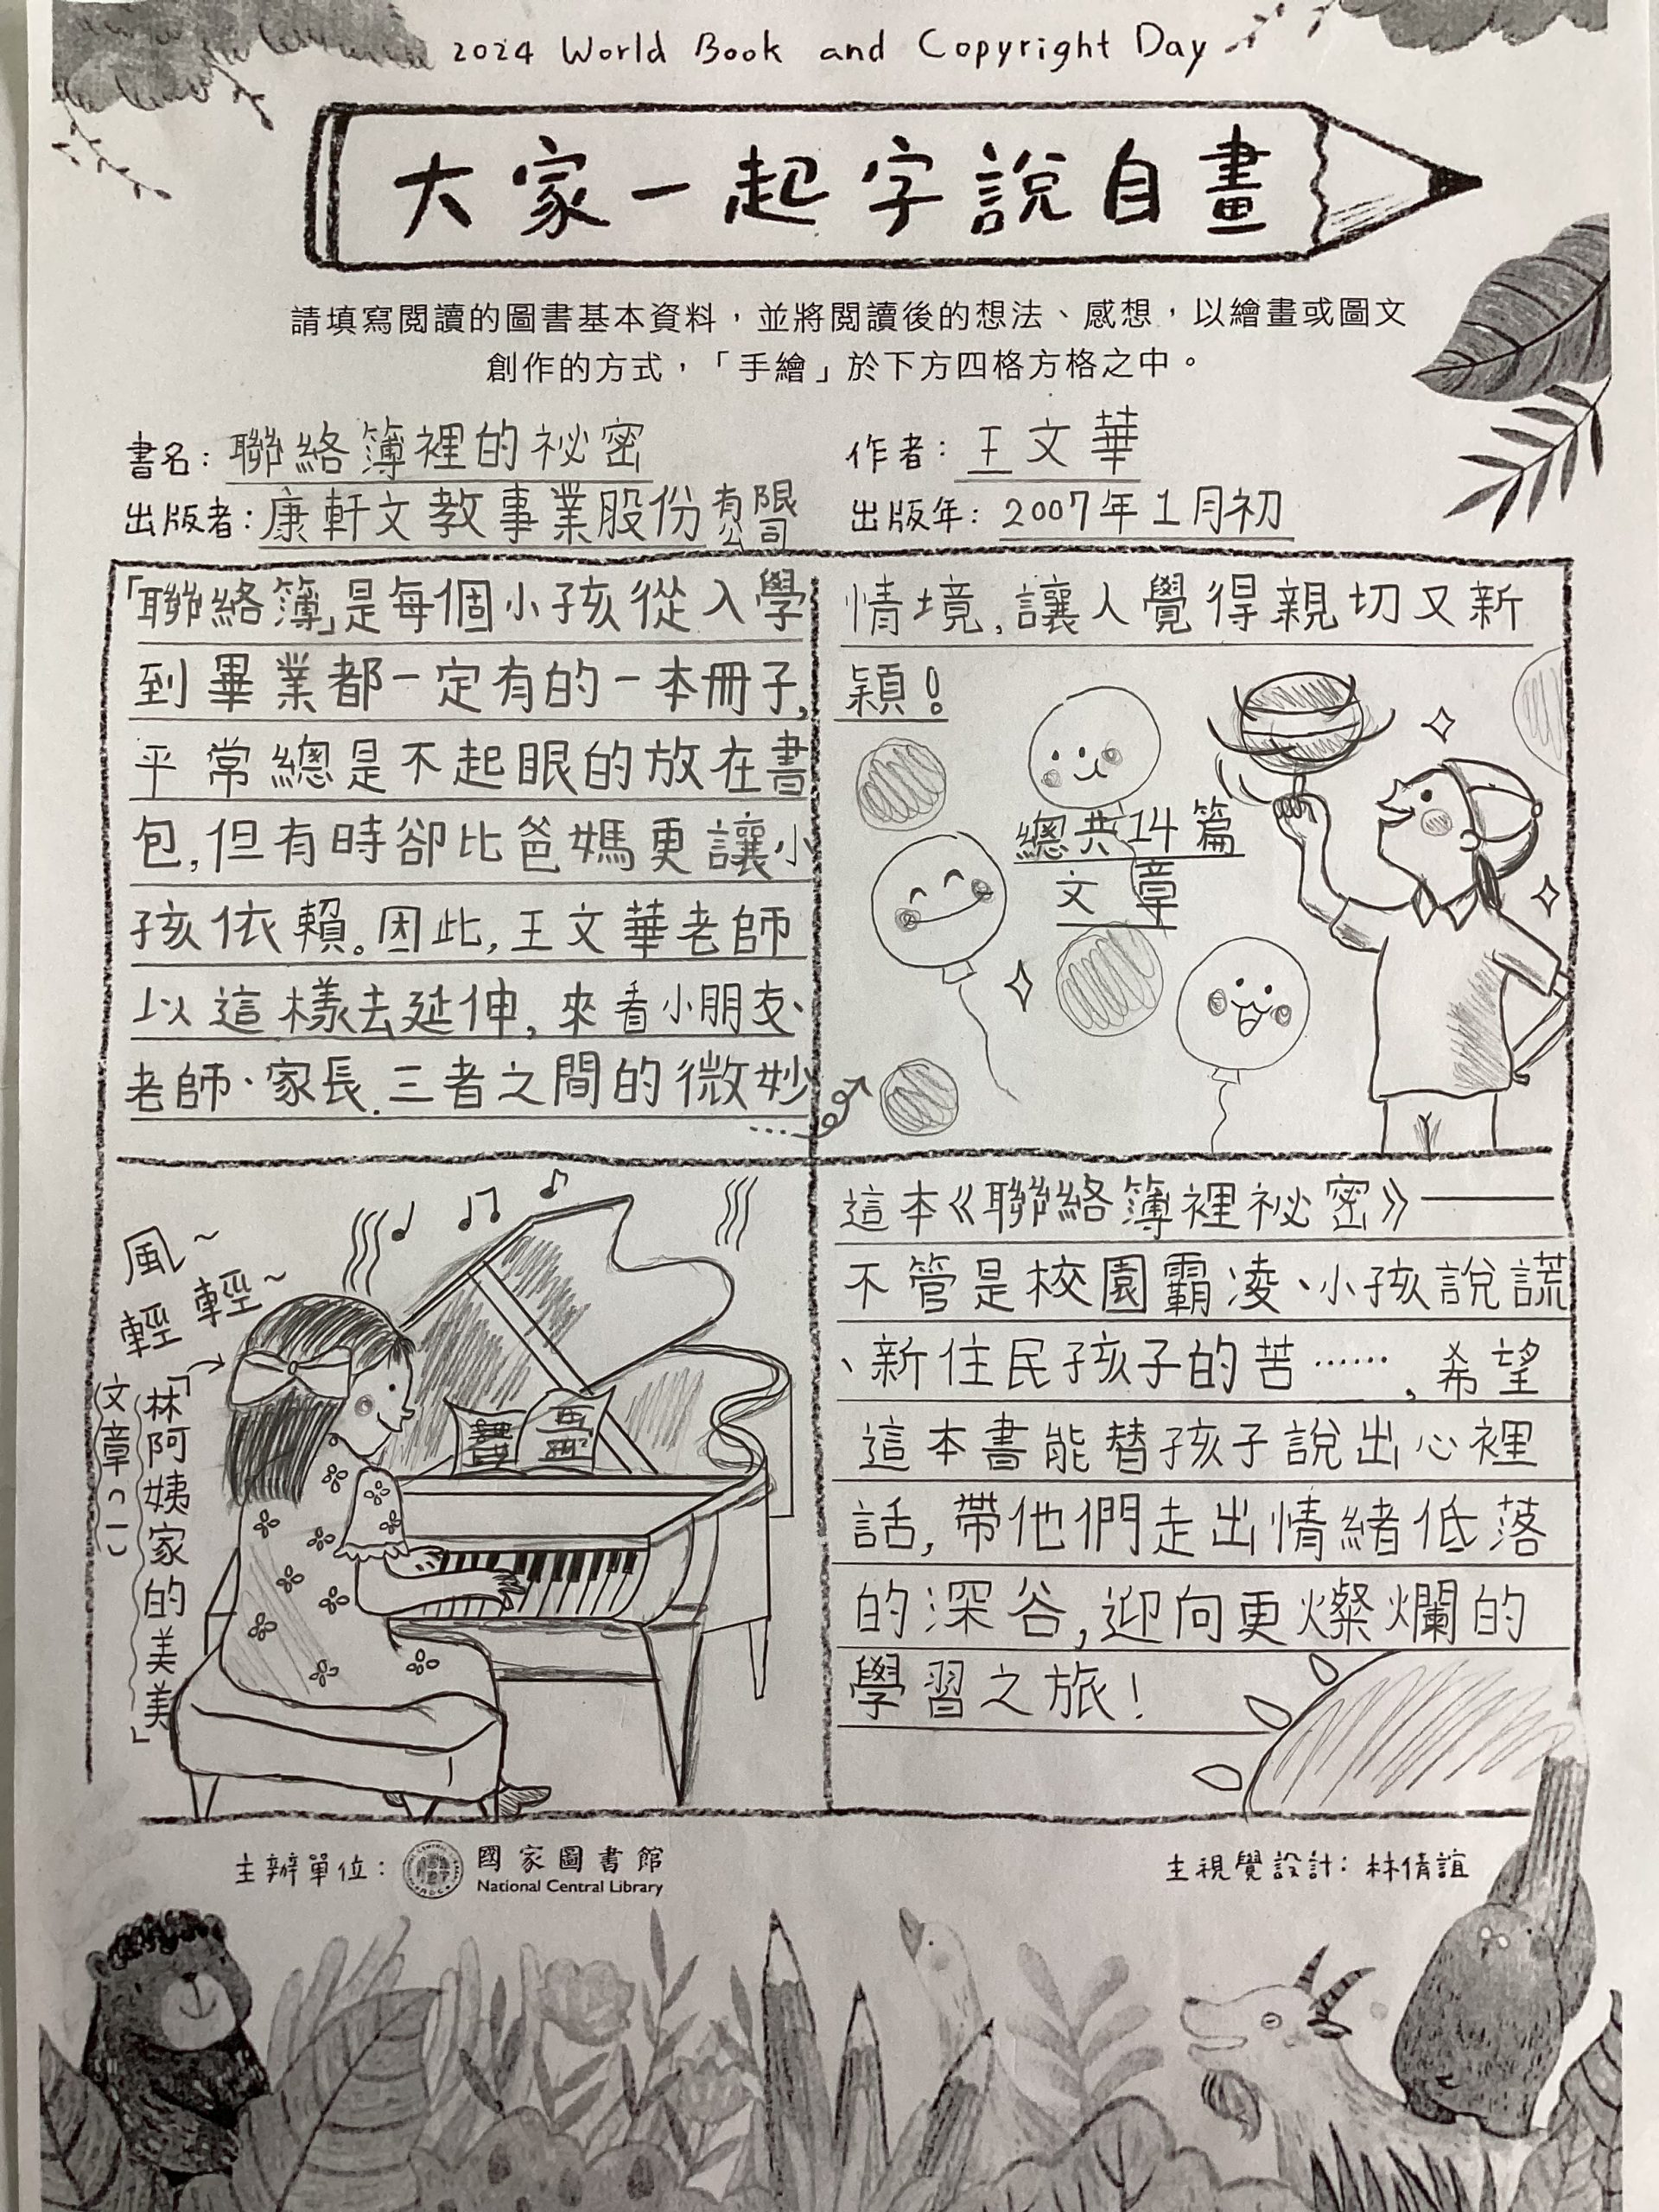 2024 World Book and Copyright Day
大家一起字說自畫
請填寫閱讀的圖書基本資料，並將閱讀後的想法、感想，以繪畫或圖文
創作的方式，「手繪」於下方四格方格之中。
書名：聯絡簿裡的祕密
作者：王文華
出版者：康軒文教事業股份有限公司
出版年：2007年1月初
「聯絡簿」是每個小孩從入學
到畢業都一定有的一本冊子,
平常總是不起眼的放在書
包,但有時卻比爸媽更讓小
孩依賴。因此,王文華老師
以這樣去延伸,來看小朋友、
老師、家長.三者之間的微妙
情境,讓人覺得親切又新
穎！
總共14篇
文章
風～
輕輕～
「林阿姨家的美美」
文章(一)
這本《聯絡簿裡祕密》——
不管是校園霸凌、小孩說謊
、新住民孩子的苦……,希望
這本書能替孩子說出心裡
話,帶他們走出情緒低落
的深谷,迎向更燦爛的
學習之旅！
主辦單位：
國家圖書館
National Central Library
主視覺設計：林倩誼